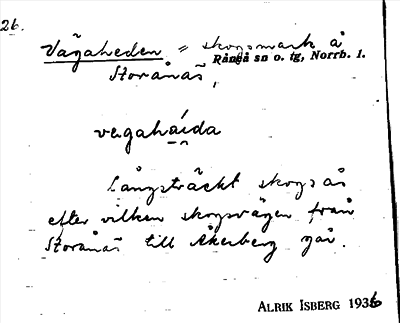 26.
Vägaheden = skogsmark å
Råneå sn o. tg, Norrb. l.
Storånäs,
vegahái̯da
Långsträckt skogsås
efter vilken skogsvägen från
Storånäs till Åkerberg går.
ALRIK ISBERG 1936